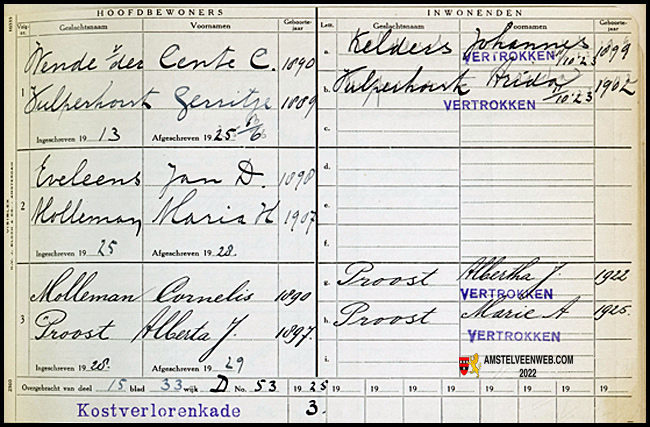 HOOFDBEWONERS
Volgnr. Geslachtsnaam Voornamen Geboortejaar
1
Wende v der Cente C. 1890
Vulperhorst Gerritje 1889
Ingeschreven 19 13 Afgeschreven 19 25
2
Eveleens Jan D. 1898
Molleman Maria H 1907
Ingeschreven 19 25 Afgeschreven 19 28.
3
Molleman Cornelis 1890
Proost Alberta J. 1897.
Ingeschreven 19 28. Afgeschreven 19 29
INWONENDEN
Lett. Geslachtsnaam Voornamen Geboortejaar
a. Kelders Johannes 1899
VERTROKKEN 11/10'23
b. Vulperhorst Arida 1902
VERTROKKEN 11/10'23
c.
g. Proost Albertha J. 1922
VERTROKKEN
h. Proost Marie A 1925.
VERTROKKEN
i.
AMSTELVEENWEB.COM
2022
Overgebracht van deel 15 blad 33 wijk D No. 53 19 25 19 19 19 19 19 19 19 19
Kostverlorenkade 3.